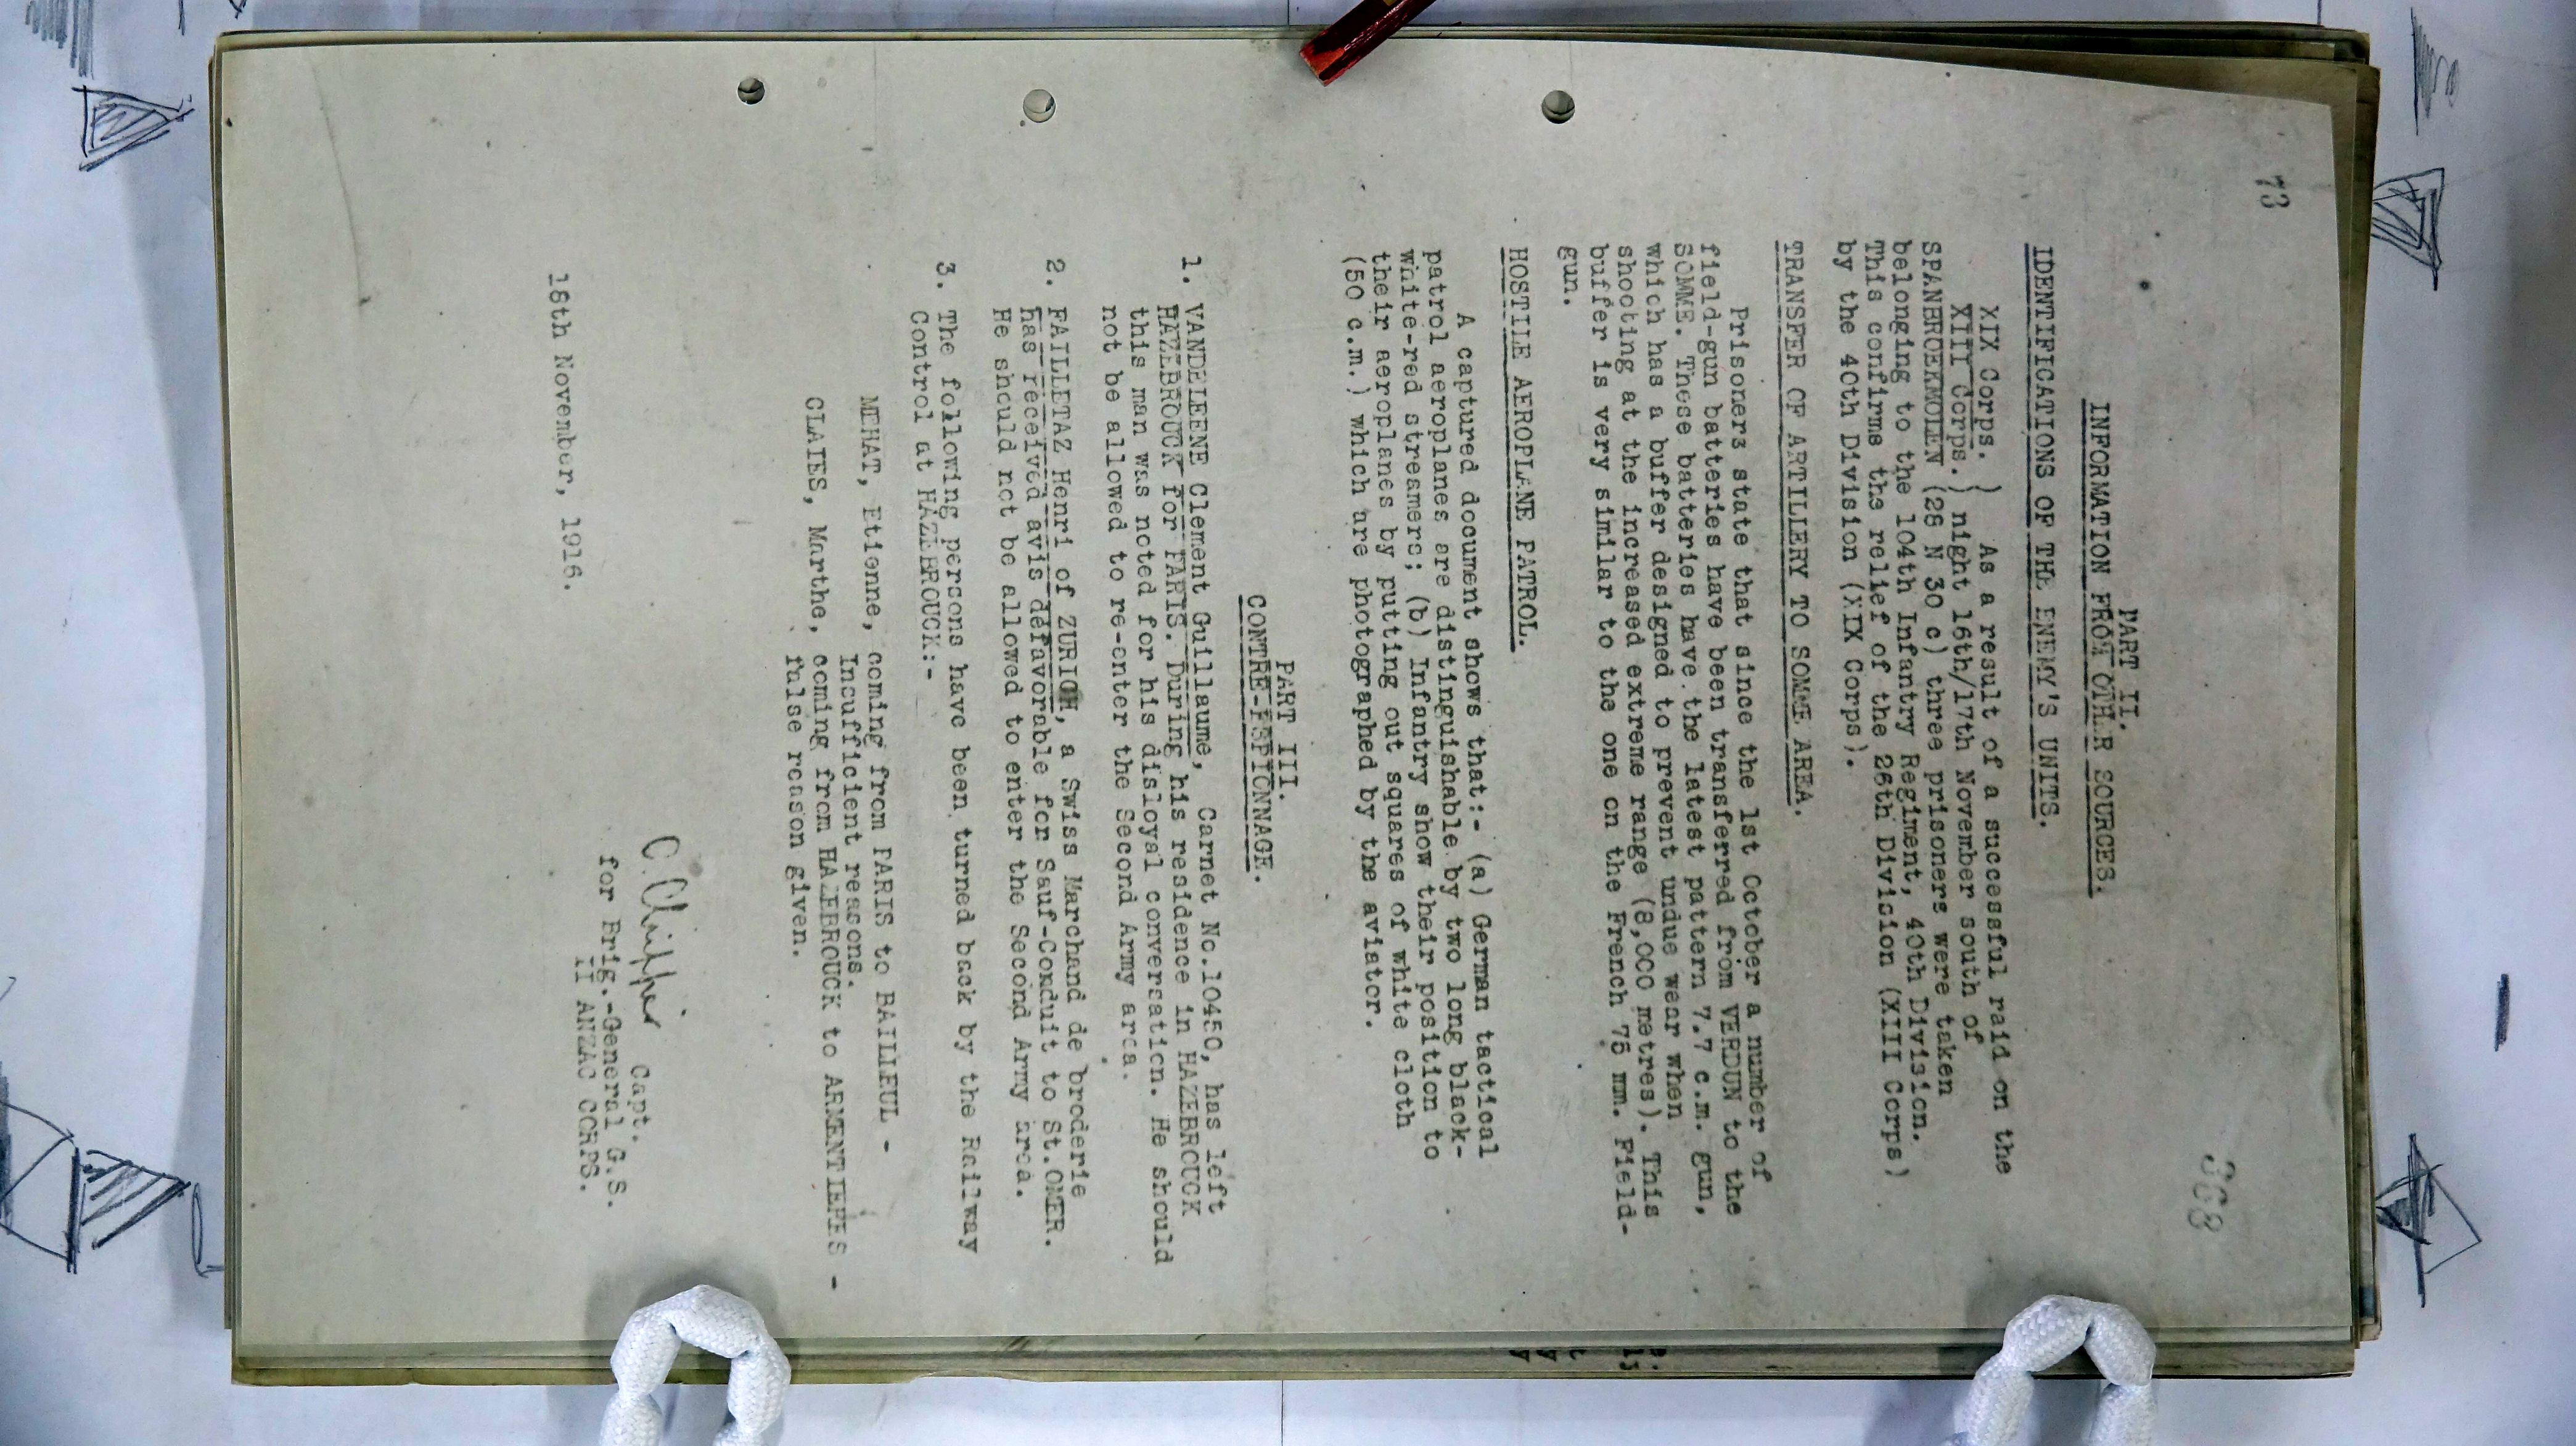 73
368
PART II.
INFORMATION FROM OTHER SOURCES.
IDENTIFICATIONS OF THE ENEMY'S UNITS.
XIX Corps. ) As a result of a successful raid on the
XIII Corps. ) night 16th/17th November south of
SPANBROEKMOLEN (28 N 30 c) three prisoners were taken
belonging to the 104th Infantry Regiment, 40th Division.
This confirms the relief of the 26th Division (XIII Corps)
by the 40th Division (XIX Corps).
TRANSFER OF ARTILLERY TO SOMME AREA.
Prisoners state that since the 1st October a number of
field-gun batteries have been transferred from VERDUN to the
SOMME. These batteries have the latest pattern 7.7 c.m. gun,
which has a buffer designed to prevent undue wear when
shooting at the increased extreme range (8,000 metres). This
buffer is very similar to the one on the French 75 mm. Field-
gun.
HOSTILE AEROPLANE PATROL.
A captured document shows that:- (a) German tactical
patrol aeroplanes are distinguishable by two long black-
white-red streamers; (b) Infantry show their position to
their aeroplanes by putting out squares of white cloth
(50 c.m.) which are photographed by the aviator.
PART III.
CONTRE-ESPIONNAGE.
1. VANDELEENE Clement Guillaume, Carnet No.10450, has left
HAZEBROUCK for PARIS. During his residence in HAZEBROUCK
this man was noted for his disloyal conversation. He should
not be allowed to re-enter the Second Army area.
2. FAILLETAZ Henri of ZURICH, a Swiss Marchand de broderie
has received avis défavorable for Sauf-Conduit to St.OMER.
He should not be allowed to enter the Second Army area.
3. The following persons have been turned back by the Railway
Control at HAZEBROUCK:-
MEHAT, Etienne, coming from PARIS to BAILLEUL -
Insufficient reasons.
CLAIES, Marthe, coming from HAZEBROUCK to ARMENTIERES -
false reason given.
Capt.
for Brig.-General G.S.
II ANZAC CORPS.
18th November, 1916.